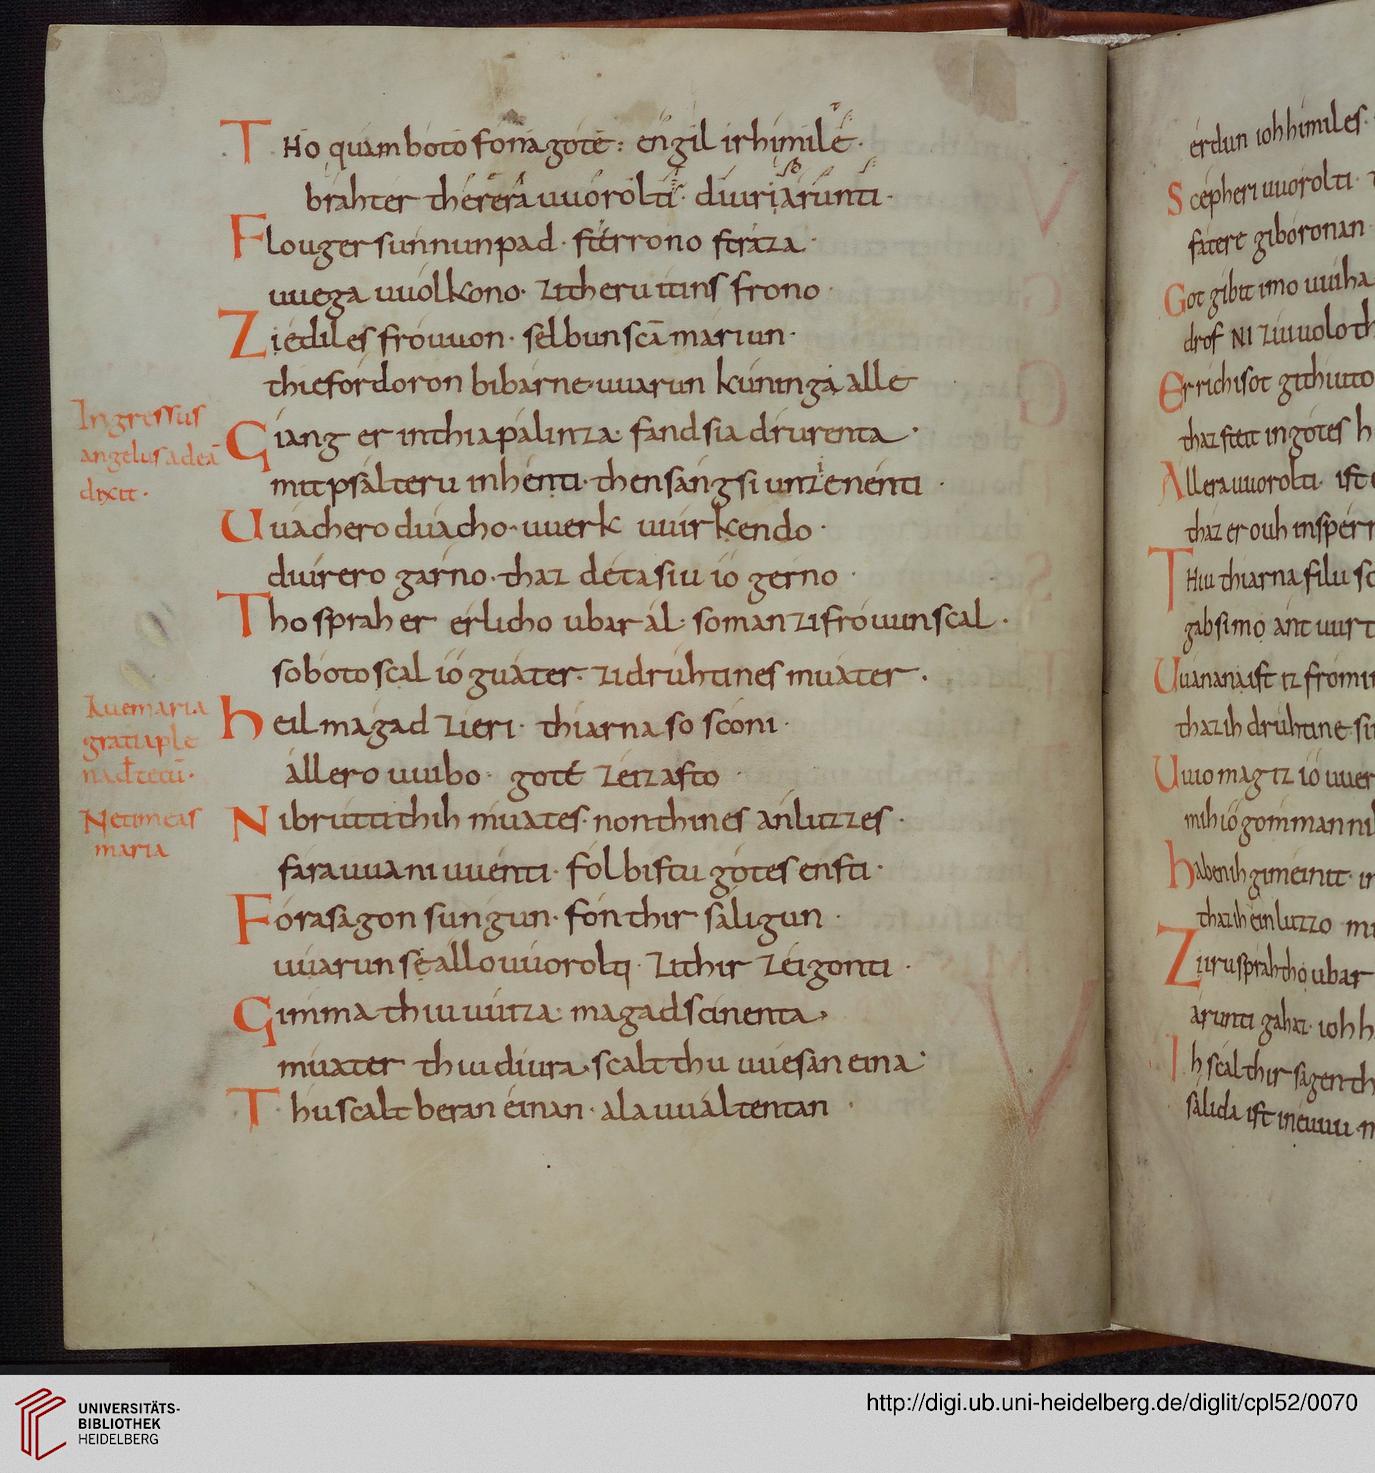 THo quam boto fona gote: engil ir himile·
brahter therera uuorolti· diuri arunti·
Floug er sunnun pad· sterrono straza·
uuega uuolkono· zi theru itins frono·
Zi ediles frouuon· selbun scā mariun·
thie fordoron bi barne· uuarun kuninga alle
Ingressus
angelus ad eā
dixit·
Giang er in thia palinza· fand sia drurenta·
mit psalteru in henti· then sang si unz in enti·
Uuachero duacho· uuerk uuirkendo·
diurero garno· thaz deta siu io gerno·
Tho sprah er erlicho ubar al· so man zi frouun scal·
so boto scal io guater· zi druhtines muater·
Aue maria
gratia ple
na dn̄s tecū·
heil magad zieri· thiarna so sconi·
allero uuibo· gote zeizasto·
Ne timeas
maria
Ni brutti thih muates· noh thines anluzzes·
farauua ni uuenti· fol bistu gotes ensti·
Forasagon sungun· fon thir saligun·
uuarun se allo uuorolti· zi thir zeigonti·
Gimma thiu uuiza· magad scinenta·
muater thiu diura· scalt thu uuesan eina·
Thu scalt beran einan· alauualtentan·
erdun ioh himiles·
Scepheri uuorolti·
fatere giboronan
Got gibit imo uuiha
drof NI zuiuolo th
Er richisot githiuto
thaz steit in gotes h
Allera uuorolti· ist
thaz er ouh in sper
THiu thiarna filu sc
gab si mo antuurt
Uuanana ist iz fro mi
thaz ih druhtine si
Uuio mag iz io uuer
mih io gomman ni
haben ih gimeinit· in
thaz ih einluzzo mi
Zi iru sprah tho ubar
arunti gahaz· ioh h
Ih scal thir sagen th
salida ist in euuu· n
UNIVERSITÄTS-
BIBLIOTHEK
HEIDELBERG
http://digi.ub.uni-heidelberg.de/diglit/cpl52/0070